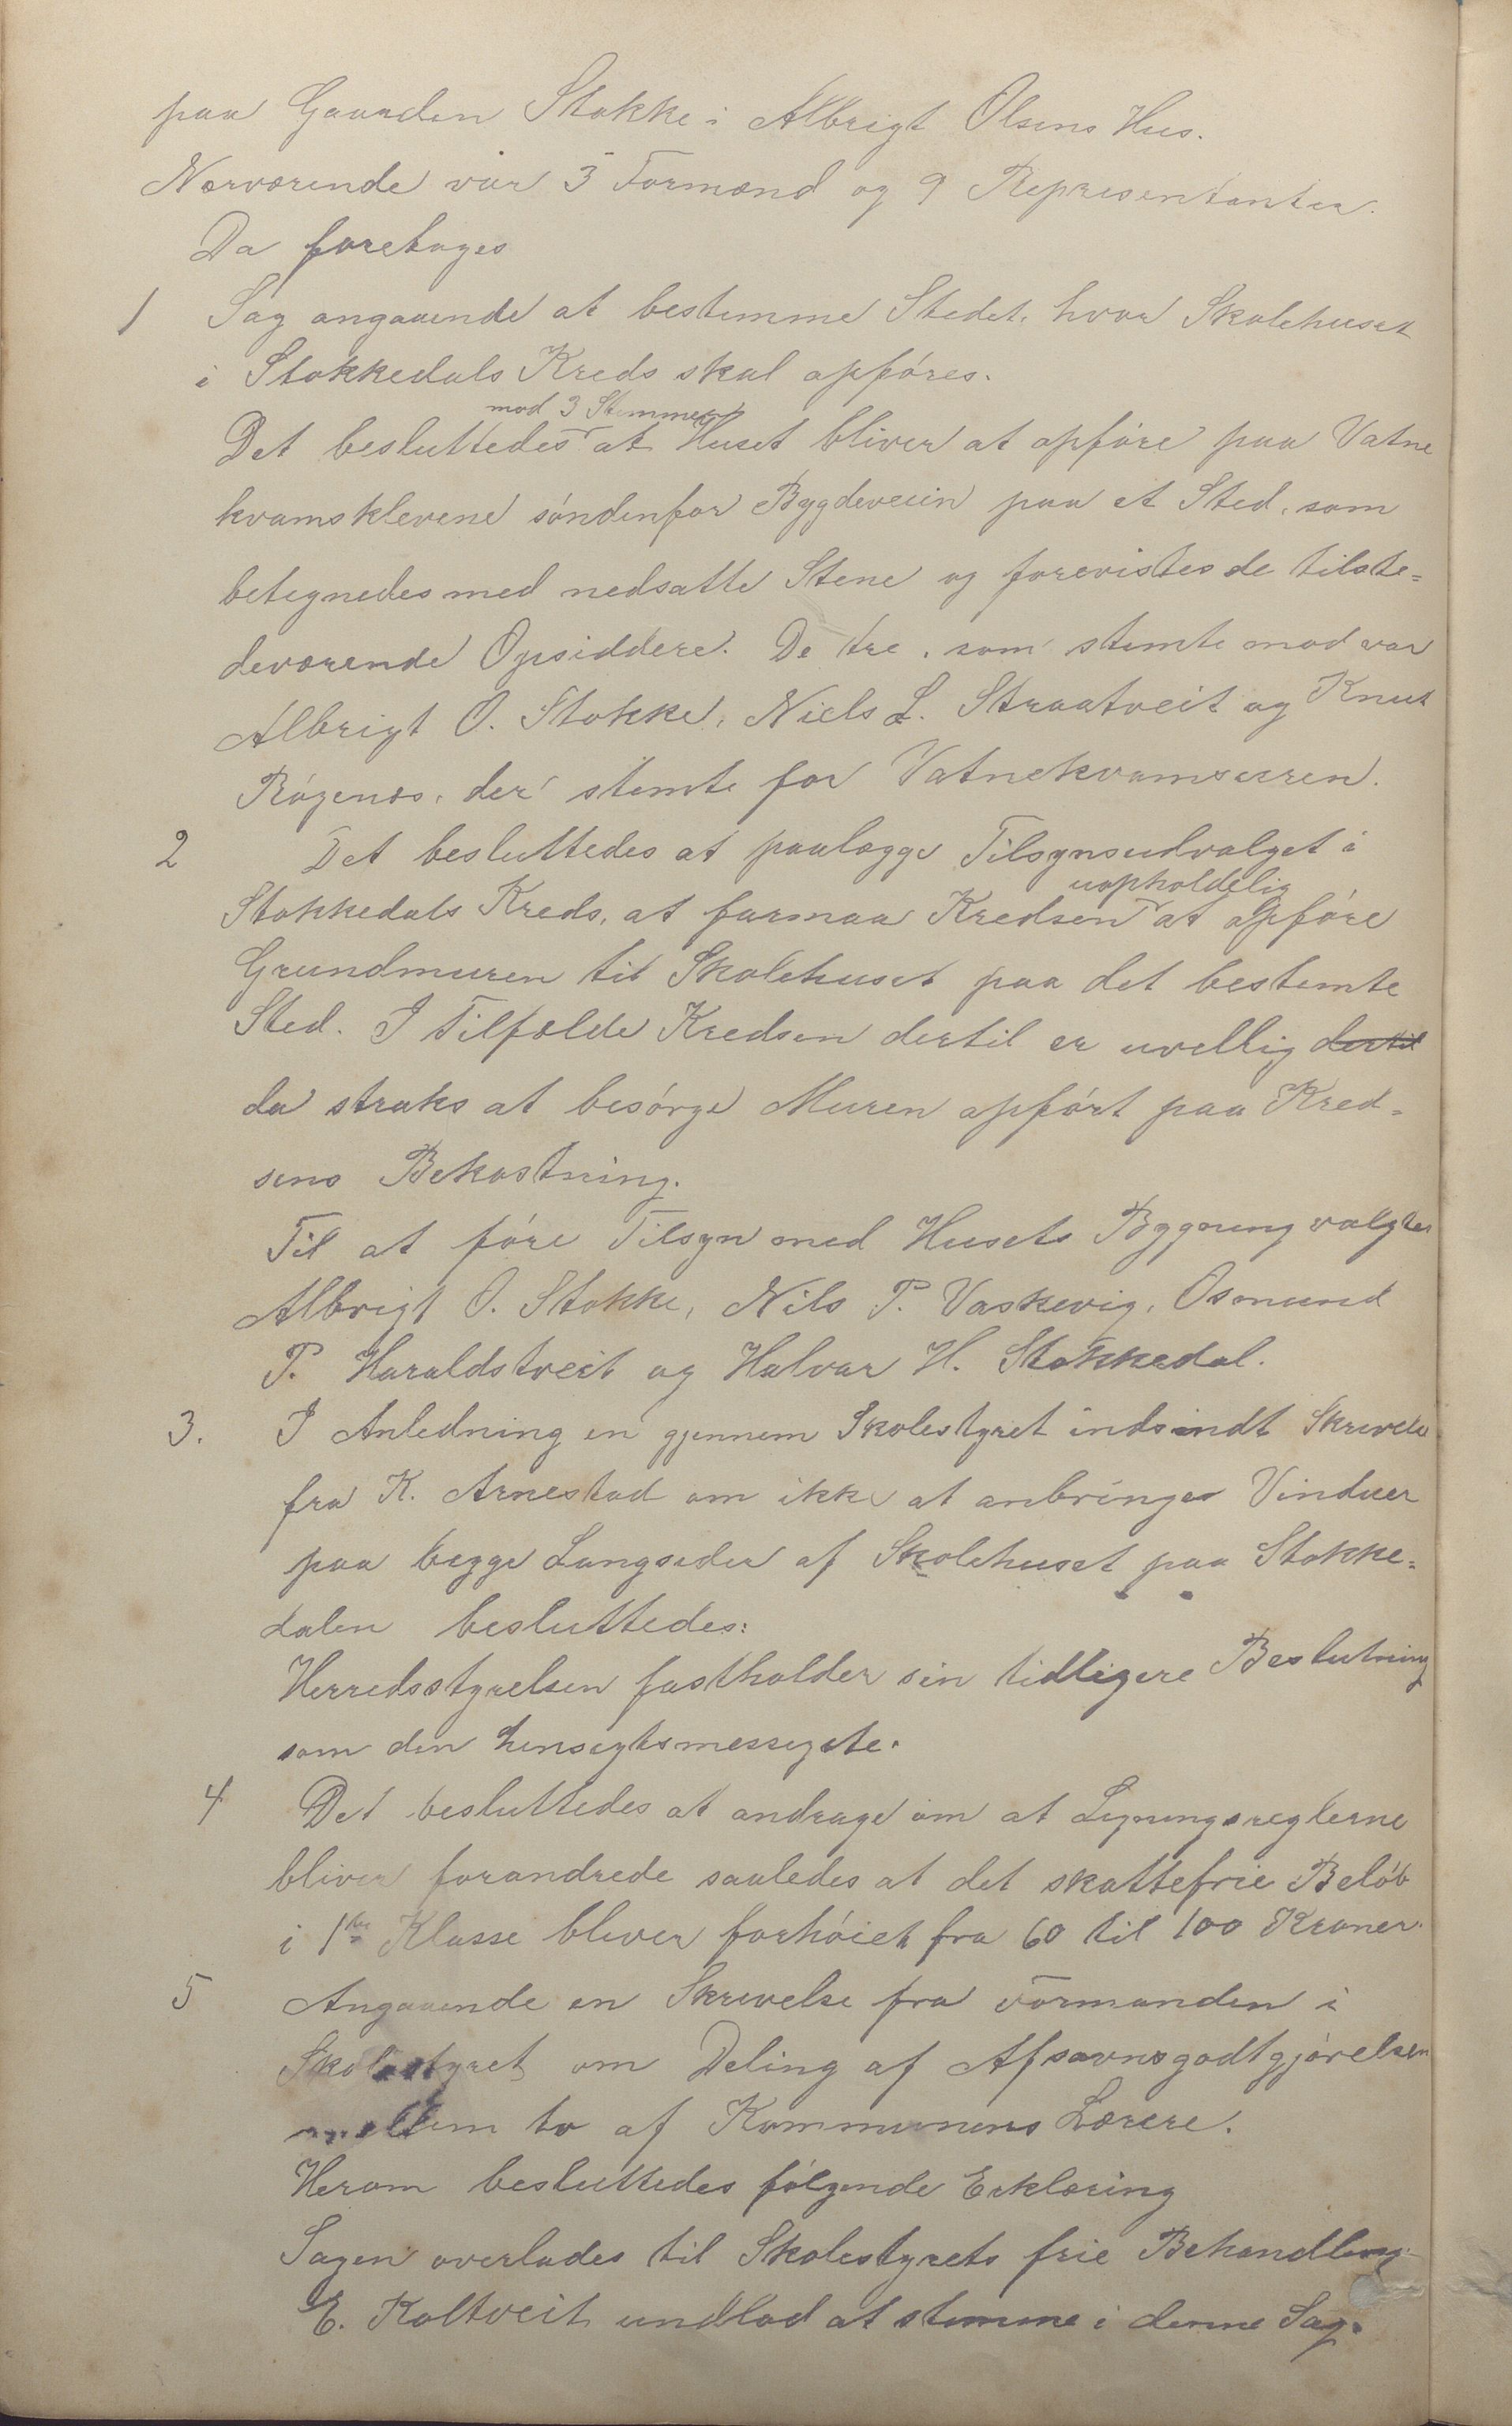 paa Gaarden Stokke i Albrigt Olsens Hus.
Nærværende var 3 Formænd og 9 Repræsentanter.
Da foretoges
1 Sag angaaende at bestemme Stedet, hvor Skolehuset
i Stokkedals Kreds skal opføres.
mod 3 Stemmer
Det besluttedes at Huset bliver at opføre paa Vatne
kvamsklevene søndenfor Bygdeveien paa et Sted, som
betegnedes med nedsatte Stene og forevistes de tilste=
deværende Opsiddere. De tre, som stemte mod var
Albrigt O. Stokke, Niels L. Straatveit og Knut
Røgenes, der stemte for Vatnekvamsurren.
2 Det besluttedes at paalægge Tilsynsudvalget i
uopholdelig
Stokkedals Kreds, at formaa Kredsen at opføre
Grundmuren til Skolehuset paa det bestemte
Sted. I Tilfælde Kredsen dertil er uvellig dertil
da straks at besørge Muren opført paa Kred=
sens Bekostning.
Til at føre Tilsyn med Husets Bygning valgtes
Albrigt O. Stokke, Nils P. Vaskevig, Osmund
P. Haraldstveit og Halvar H. Stokkedal.
3. I Anledning en gjennem Skolestyret indsendt Skrivelse
fra K. Arnestad om ikke at anbringes Vinduer
paa begge Langsider af Skolehuset paa Stokke=
dalen besluttedes:
Herredsstyrelsen fastholder sin tidligere Beslutning
som den hensigtsmessigste.
4 Det besluttedes at andrage om at Ligningsreglerne
bliver forandrede saaledes at det skattefrie Beløb
i 1ste Klasse bliver forhøiet fra 60 til 100 Kroner.
5 Angaaende en Skrivelse fra Formanden i
Skolestyret om Deling af Afsavnsgodtgjørelsen
mellem to af Kommunens Lærere.
Herom besluttedes følgende Erklæring
Sagen overlades til Skolestyrets frie Behandling
E. Koltveit undlod at stemme i denne Sag.